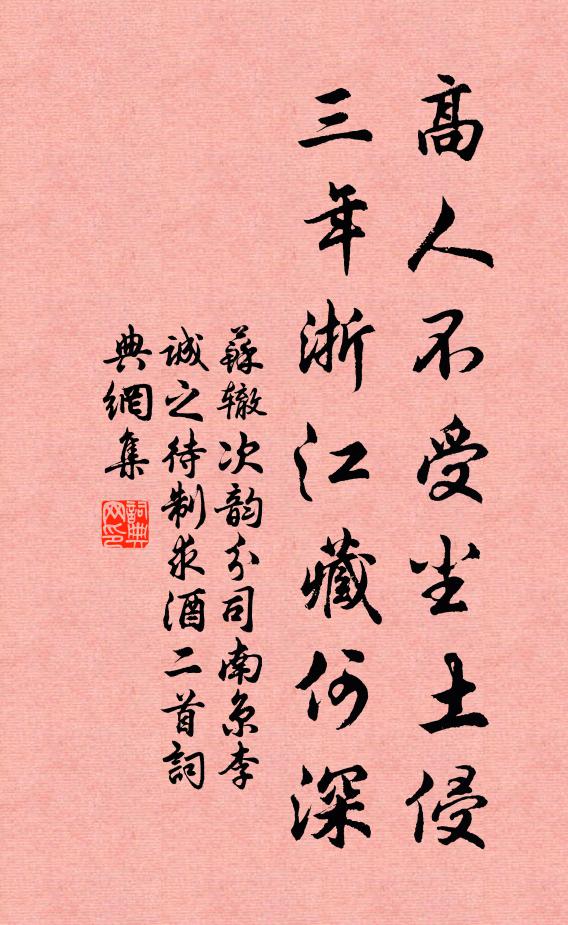 高人不受尘土侵
三年浙江藏何深
蘇辙次韵分司南京李
诚之待制求酒二首詞
典網集
詞典网印